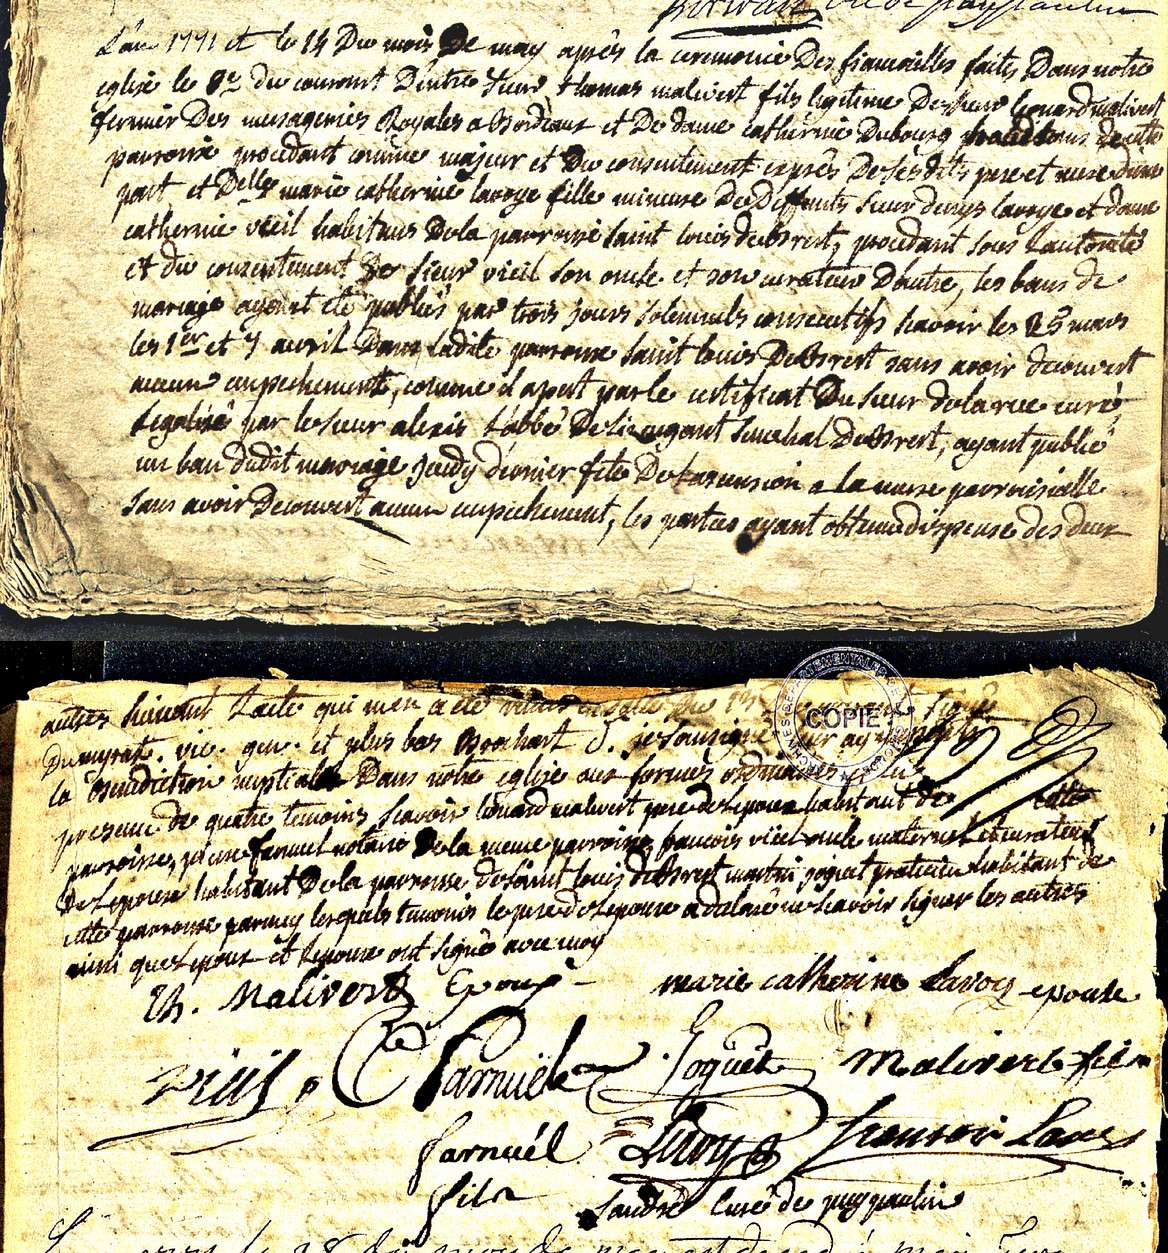 vic de puypaulin
L'an 1771 et le 14 Du mois De may après la ceremonie Des fiancailles faite Dans notre
eglise le 8e du courant Dentre Sieur thomas malivert fils legitime De sieur leonard malivert
fermier Des messageries Royales a Bordeaux et De dame catherine Dubourg habitans de cette
parroisse procedant comme majeur et Du consentement exprès De ses dits pere et mere d'une
part, et Delle marie catherine lavoye fille mineure De Deffunts Sieur denys lavoye et dame
catherine vieil habitans De la parroisse saint louis de Brest, procedant sous L'autorité
et du consentement de sieur vieil son oncle et son curateur D'autre, les bans de
mariage ayant été publiés par trois jours solemnels consecutifs savoir les 25 mars
les 1er et 7 avril Dans ladite parroisse saint louis De Brest sans avoir decouvert
aucun empechement, comme il apert par le certificat Du sieur de la rue curé,
Legalisé par le sieur alexis Labbé De senechal De Brest, ayant publié
un ban dudit mariage Jeudy dernier fete De L'ascension a la messe parroissielle
sans avoir Decouvert aucun empechement, les parties ayant obtenu dispense des deux
autres suivant L'acte qui m'en a été signé
Dumyrat. vic. gen. et plus bas Brochart S. je soussigné leur ay
la Benediction nuptiale Dans notre eglise aux formes ordinaires
presence de quatre temoins savoir leonard malivert pere de Lepoux habitant de cette
parroisse, pierre farnuel notaire De la meme parroisse, francois vieil oncle maternel et curateur
De Lepouse habitant De la parroisse de saint louis de Brest martin joguet praticien habitant de
cette parroisse parmy lesquels temoins le pere de Lepoux a declaré ne savoir signer les autres
ainsi que Lepoux et Lepouse ont signé avec moy
Th. Malivert Epoux - marie catherine Lavoy epouse
vieil farnuël Joguet Malivert fils
farnuél Lavoy francois
fils Landré Curé de puypaulin